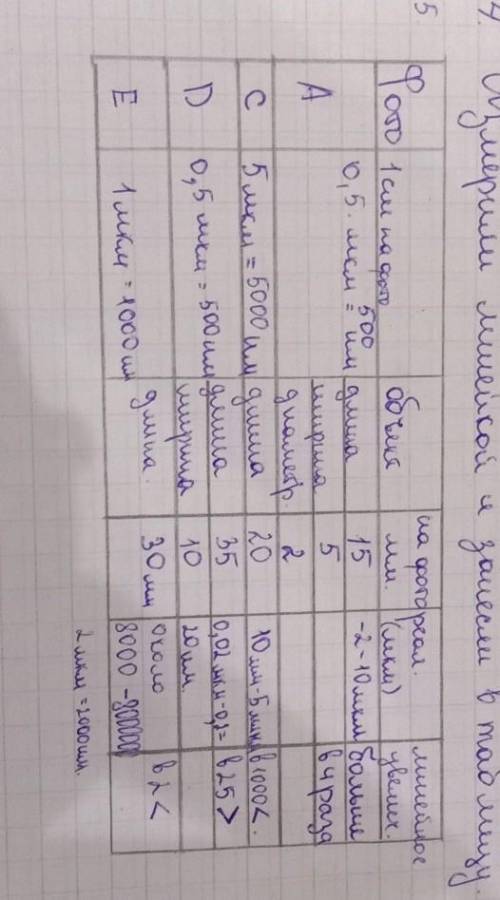 4. Измерили линейкой и занесём в таблицу.
5
Фото 1 см на фото объект на фото мм. реал. (мкм) линейное увелич.
А 0,5 мкм = 500 нм длина 15 -2-10 мкм больше
ширина 5 в 4 раза
диаметр. 2
С 5 мкм = 5000 нм длина 20 10 мм - 5 мкм в 1000 <.
D 0,5 мкм = 500 нм длина 35 0,02 мкм - 0,2 = в 25 >
ширина 10 20 нм.
Е 1 мкм = 1000 нм длина. 30 мм около 8000 - в 2 <
2 мкм = 2000 нм.